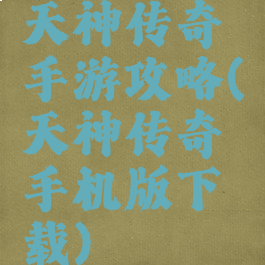 天神传奇
手游攻略(
天神传奇
手机版下
载)